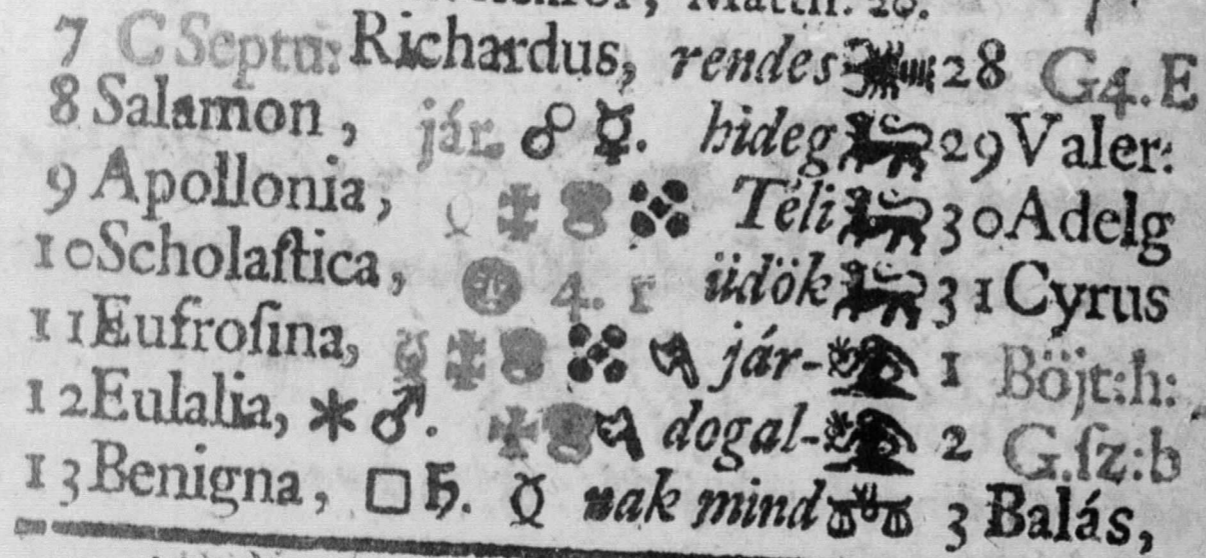 Matth. 20.
7 C Septu: Richardus, rendes 28 G4. E
8 Salamon, jár. ☍ ☿. hideg 29 Valer:
9 Apollonia, Téli 30 Adelg
10 Scholaſtica, 4. 1 üdök 31 Cyrus
11 Eufroſina, jár- 1 Böjt:h:
12 Eulalia, ⚹ ♂. dogal- 2 G.ſz:b
13 Benigna, □ ♄. nak mind 3 Balás,